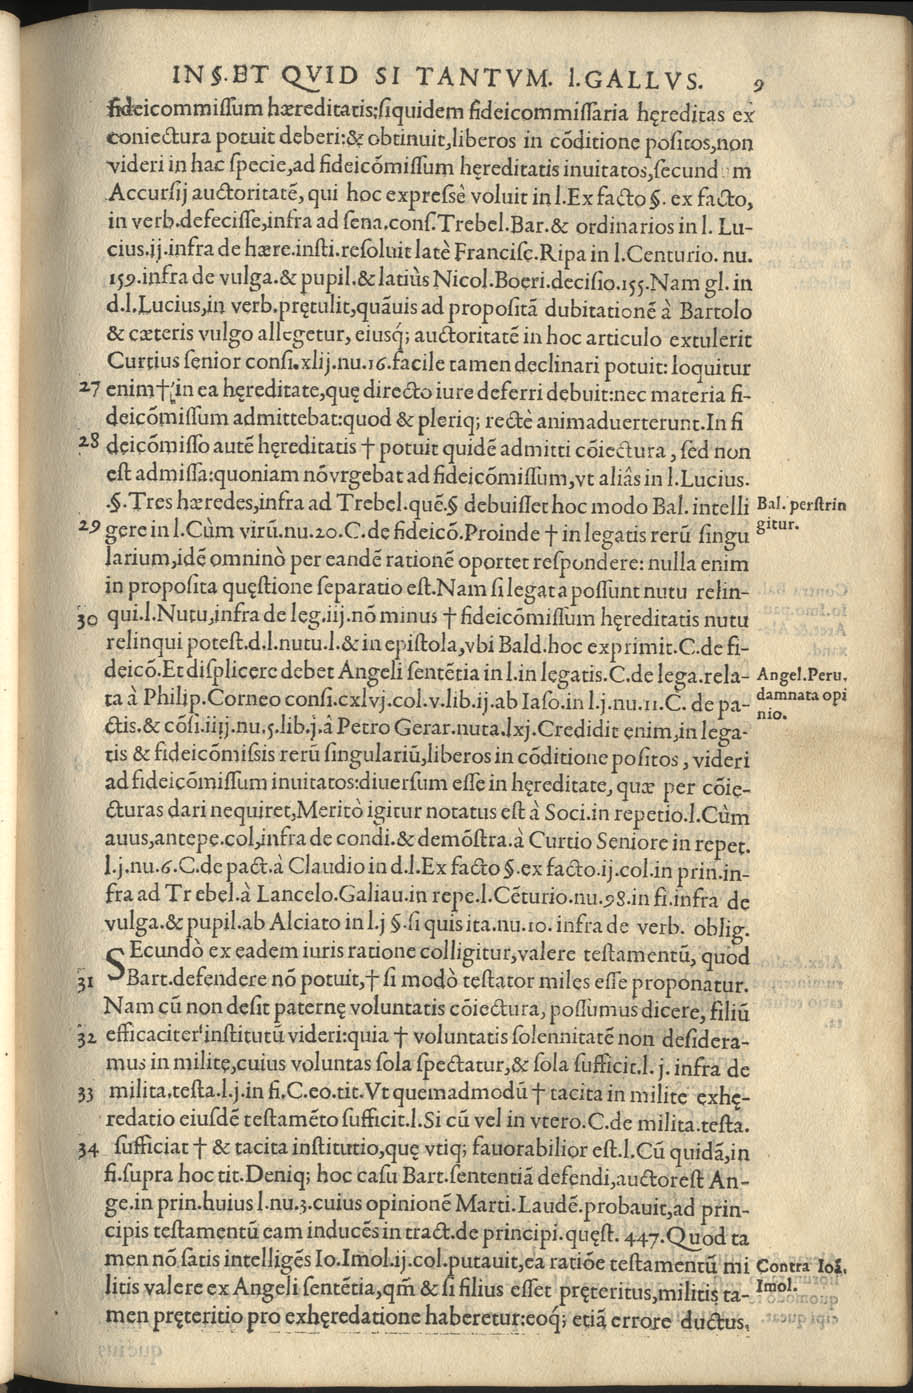 IN §. ET QVID SI TANTVM. l. GALLVS. 9
fideicommiſſum hæreditatis: ſiquidem fideicommiſſaria hęreditas ex
coniectura potuit deberi: & obtinuit, liberos in cōditione poſitos, non
videri in hac ſpecie, ad fideicōmiſſum hęreditatis inuitatos, ſecund m
Accurſij auctoritatē, qui hoc expreſsè voluit in l. Ex facto §. ex facto,
in verb. defeciſſe, infra ad ſena. conſ. Trebel. Bar. & ordinarios in l. Lu-
cius. ij. infra de hære. inſti. reſoluit latè Franciſc. Ripa in l. Centurio. nu.
159. infra de vulga. & pupil. & latiùs Nicol. Boeri. deciſio. 155. Nam gl. in
d. l. Lucius, in verb. prętulit, quāuis ad propoſitā dubitationē à Bartolo
& cæteris vulgo allegetur, eiusq́; auctoritatē in hoc articulo extulerit
Curtius ſenior conſi. xlij. nu. 16. facile tamen declinari potuit: loquitur
27 enim † in ea hęreditate, quę directo iure deferri debuit: nec materia fi-
deicōmiſſum admittebat: quod & pleriq; rectè animaduerterunt. In fi
28 deicōmiſſo autē hęreditatis † potuit quidē admitti cōiectura, ſed non
eſt admiſſa: quoniam nō vrgebat ad fideicōmiſſum, vt aliâs in l. Lucius.
.§. Tres hæredes, infra ad Trebel. quē. § debuiſſet hoc modo Bal. intelli
Bal. perſtrin
gitur.
29 gere in l. Cùm virū. nu. 20. C. de fideicō. Proinde † in legatis rerū ſingu
larium, idē omninò per eandē rationē oportet reſpondere: nulla enim
in propoſita quęſtione ſeparatio eſt. Nam ſi legata poſſunt nutu relin-
30 qui. l. Nutu, infra de leg. iij. nō minus † fideicōmiſſum hęreditatis nutu
relinqui poteſt. d. l. nutu. l. & in epiſtola, vbi Bald. hoc exprimit. C. de fi-
deicō. Et diſplicere debet Angeli ſentētia in l. in legatis. C. de lega. rela-
Angel. Peru.
damnata opi
nio.
ta à Philip. Corneo conſi. cxlvj. col. v. lib. ij. ab Iaſo. in l. j. nu. 11. C. de pa-
ctis. & cōſi. iiij. nu. 5. lib. j. â Petro Gerar. nuta. lxj. Credidit enim, in lega-
tis & fideicōmiſsis rerū ſingulariū, liberos in cōditione poſitos, videri
ad fideicōmiſſum inuitatos: diuerſum eſſe in hęreditate, quæ per cōie-
cturas dari nequiret, Meritò igitur notatus eſt à Soci. in repetio. l. Cùm
auus, antepe. col, infra de condi. & demōſtra. à Curtio Seniore in repet.
l. j. nu. 6. C. de pact. à Claudio in d. l. Ex facto §. ex facto. ij. col. in prin. in-
fra ad Tr ebel. à Lancelo. Galiau. in repe. l. Cēturio. nu. 98. in fi. infra de
vulga. & pupil. ab Alciato in l. j §. ſi quis ita. nu. 10. infra de verb. oblig.
SEcundò ex eadem iuris ratione colligitur, valere teſtamentū, quod
31 Bart. defendere nō potuit, † ſi modò teſtator miles eſſe proponatur.
Nam cū non deſit paternę voluntatis cōiectura, poſſumus dicere, filiū
32 efficaciter inſtitutū videri: quia † voluntatis ſolennitatē non deſidera-
mus in milite, cuius voluntas ſola ſpectatur, & ſola ſufficit. l. j. infra de
33 milita. teſta. l. j. in fi. C. eo. tit. Vt quemadmodū † tacita in milite exhę-
redatio eiuſdē teſtamēto ſufficit. l. Si cū vel in vtero. C. de milita. teſta.
34 ſufficiat † & tacita inſtitutio, quę vtiq; fauorabilior eſt. l. Cū quidā, in
fi. ſupra hoc tit. Deniq; hoc caſu Bart. ſententiā defendi, auctor eſt An-
ge. in prin. huius l. nu. 3. cuius opinionē Marti. Laudē. probauit, ad prin-
cipis teſtamentū eam inducēs in tract. de principi. quęſt. 447. Quod ta
men nō ſatis intelligēs Io. Imol. ij. col. putauit, ea ratiōe teſtamentū mi
Contra Ioā.
Imol.
litis valere ex Angeli ſentētia, qm̄ & ſi filius eſſet pręteritus, militis ta-
men pręteritio pro exhęredatione haberetur: eoq́; etiā errore ductus,